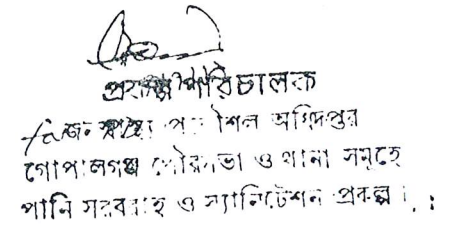 প্রকল্প পরিচালক
জনস্বাস্থ্য প্রকৌশল অধিদপ্তর
গোপালগঞ্জ পৌরসভা ও থানা সমূহে
পানি সরবরাহ ও স্যানিটেশন প্রকল্প।